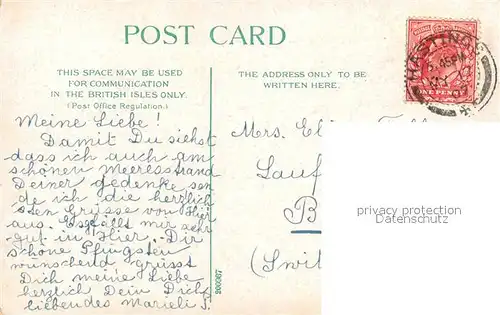 POST CARD
THIS SPACE MAY BE USED
FOR COMMUNICATION
IN THE BRITISH ISLES ONLY.
(Post Office Regulation.)
THE ADDRESS ONLY TO BE
WRITTEN HERE.
HASTINGS
5.45 PM
ONE PENNY
Meine Liebe!
Damit Du siehst
dass ich auch am
schönen Meeresstrand
Deiner gedenke sen
de ich die herzlich
sten Grüsse von Hier
aus. Es gfällt mir sehr
gut in Hier. Dir
schöne Pfingsten
wünschend grüsst
Dich meine Liebe
herzlich Dein Dich
liebendes Marieli S.
Mrs.
Lauf
B
(Swit
privacy protection
Datenschutz